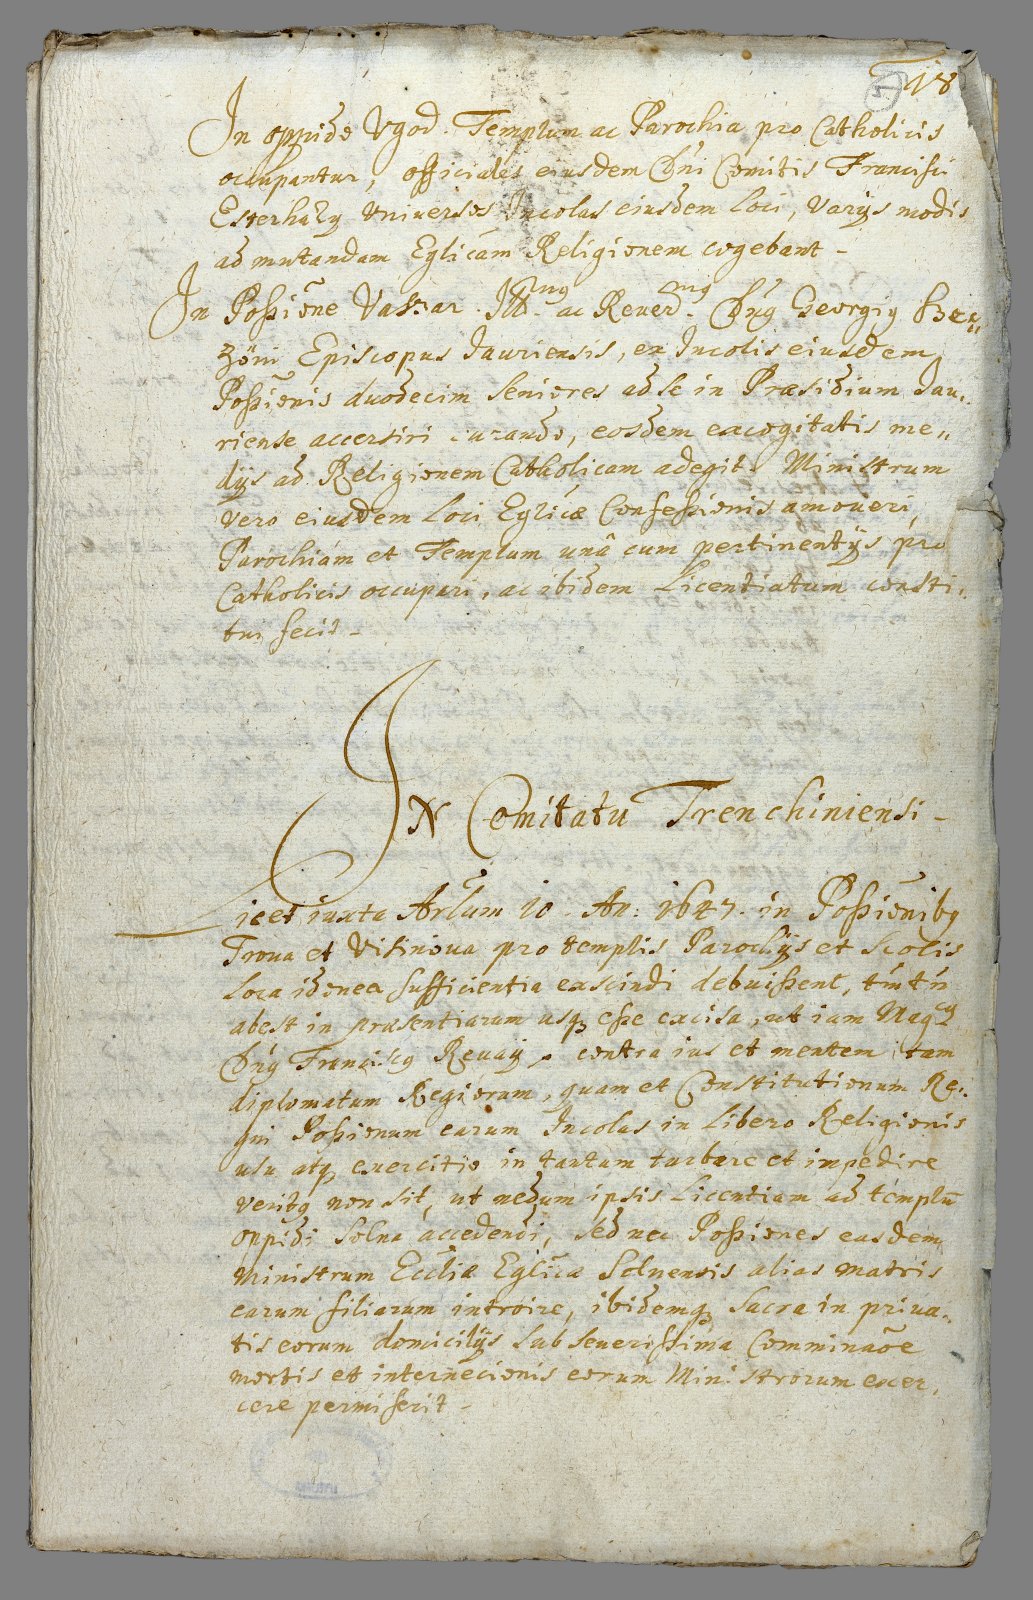 18
In oppido Vgod. Templum ac Parochia pro Catholicis
occupantur, officiales eiusdem Dni Comitis Francisci
Esterhazy Vniversos Incolas eiusdem Loci, varijs modis
ad mutandam Eglicam Religionem cogebant -
In Possione Vaszar. Illmus ac Reuerdmus Dnus Georgius
Episcopus Jauriensis, ex Incolis eiusdem
Possionis duodecim seniores ad se in Præsidium Jau„
riense accersiri curando, eosdem excogitatis me„
dijs ad Religionem Catholicam adegit. Ministrum
vero eiusdem Loci Eglicæ Confessionis amoueri,
Parochiam et Templum unâ cum pertinentijs pro
Catholicis occupari, ac ibidem Licentiatum consti„
tui fecit -
IN Comitatu Trenchiniensi -
Licet iuxta Arlum 10. An: 1647. in Possionibus
Trnoua et Visinoua pro templis Parochijs et Scolis
Loca idonea sufficientia exscindi debuissent, tmtn
abest in præsentiarum usq esse excisa, ut iam Magcus
Dnus Franciscus Reuay, contra ius et mentem tam
diplomatum Regiorum, quam et Constitutionum Re„
gni Possionum earum Incolas in Libero Religionis
usu atq exercitio in tantum turbare et impedire
veritus non sit, ut nedum ipsis Licentiam ad templū
oppidi Solna accedendi, sed nec Possiones easdem
Ministrum Eccliæ Eglicæ Solnensis alias matris
earum filiarum introire, ibidemq sacra in priua„
tis eorum domicilijs sub seuerissima Comminaõe
mortis et internecionis eorum Ministrorum exer„
cere permiserit -